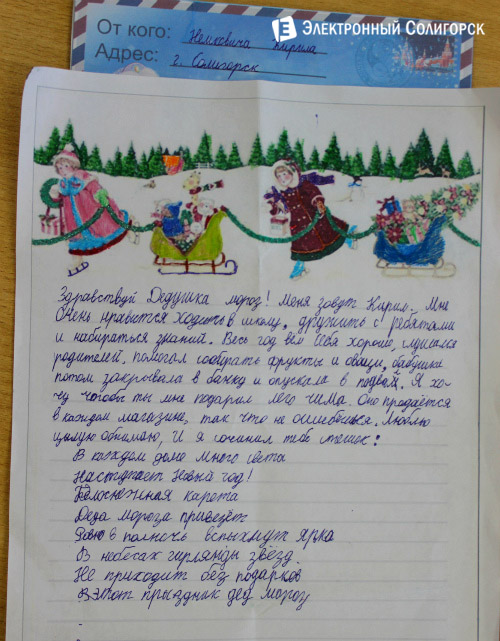 Электронный Солигорск
От кого: Немкевича Кирила
Адрес: г. Солигорск
Здравствуй Дедушка мороз! Меня зовут Кирил. Мне
очень нравится ходить в школу, дружить с ребятами
и набираться знаний. Весь год вёл себя хорошо, слушался
родителей, помогал собирать фрукты и овощи, бабушка
потом закрывала в банки и опускала в подвал. Я хо-
чу чтобы ты мне подарил лего чима. Оно продаётся
в каждом магазине, так что не ошибёшься. Люблю
целую обнимаю, И я сочинил тебе стешек:
В каждом доме много света
Наступает Новый год!
Белоснежная карета
Деда мороза привезёт
Ровно в полночь вспыхнут ярко
В небесах гирлянды звёзд.
Не приходит без подарков
В этот праздник дед мороз